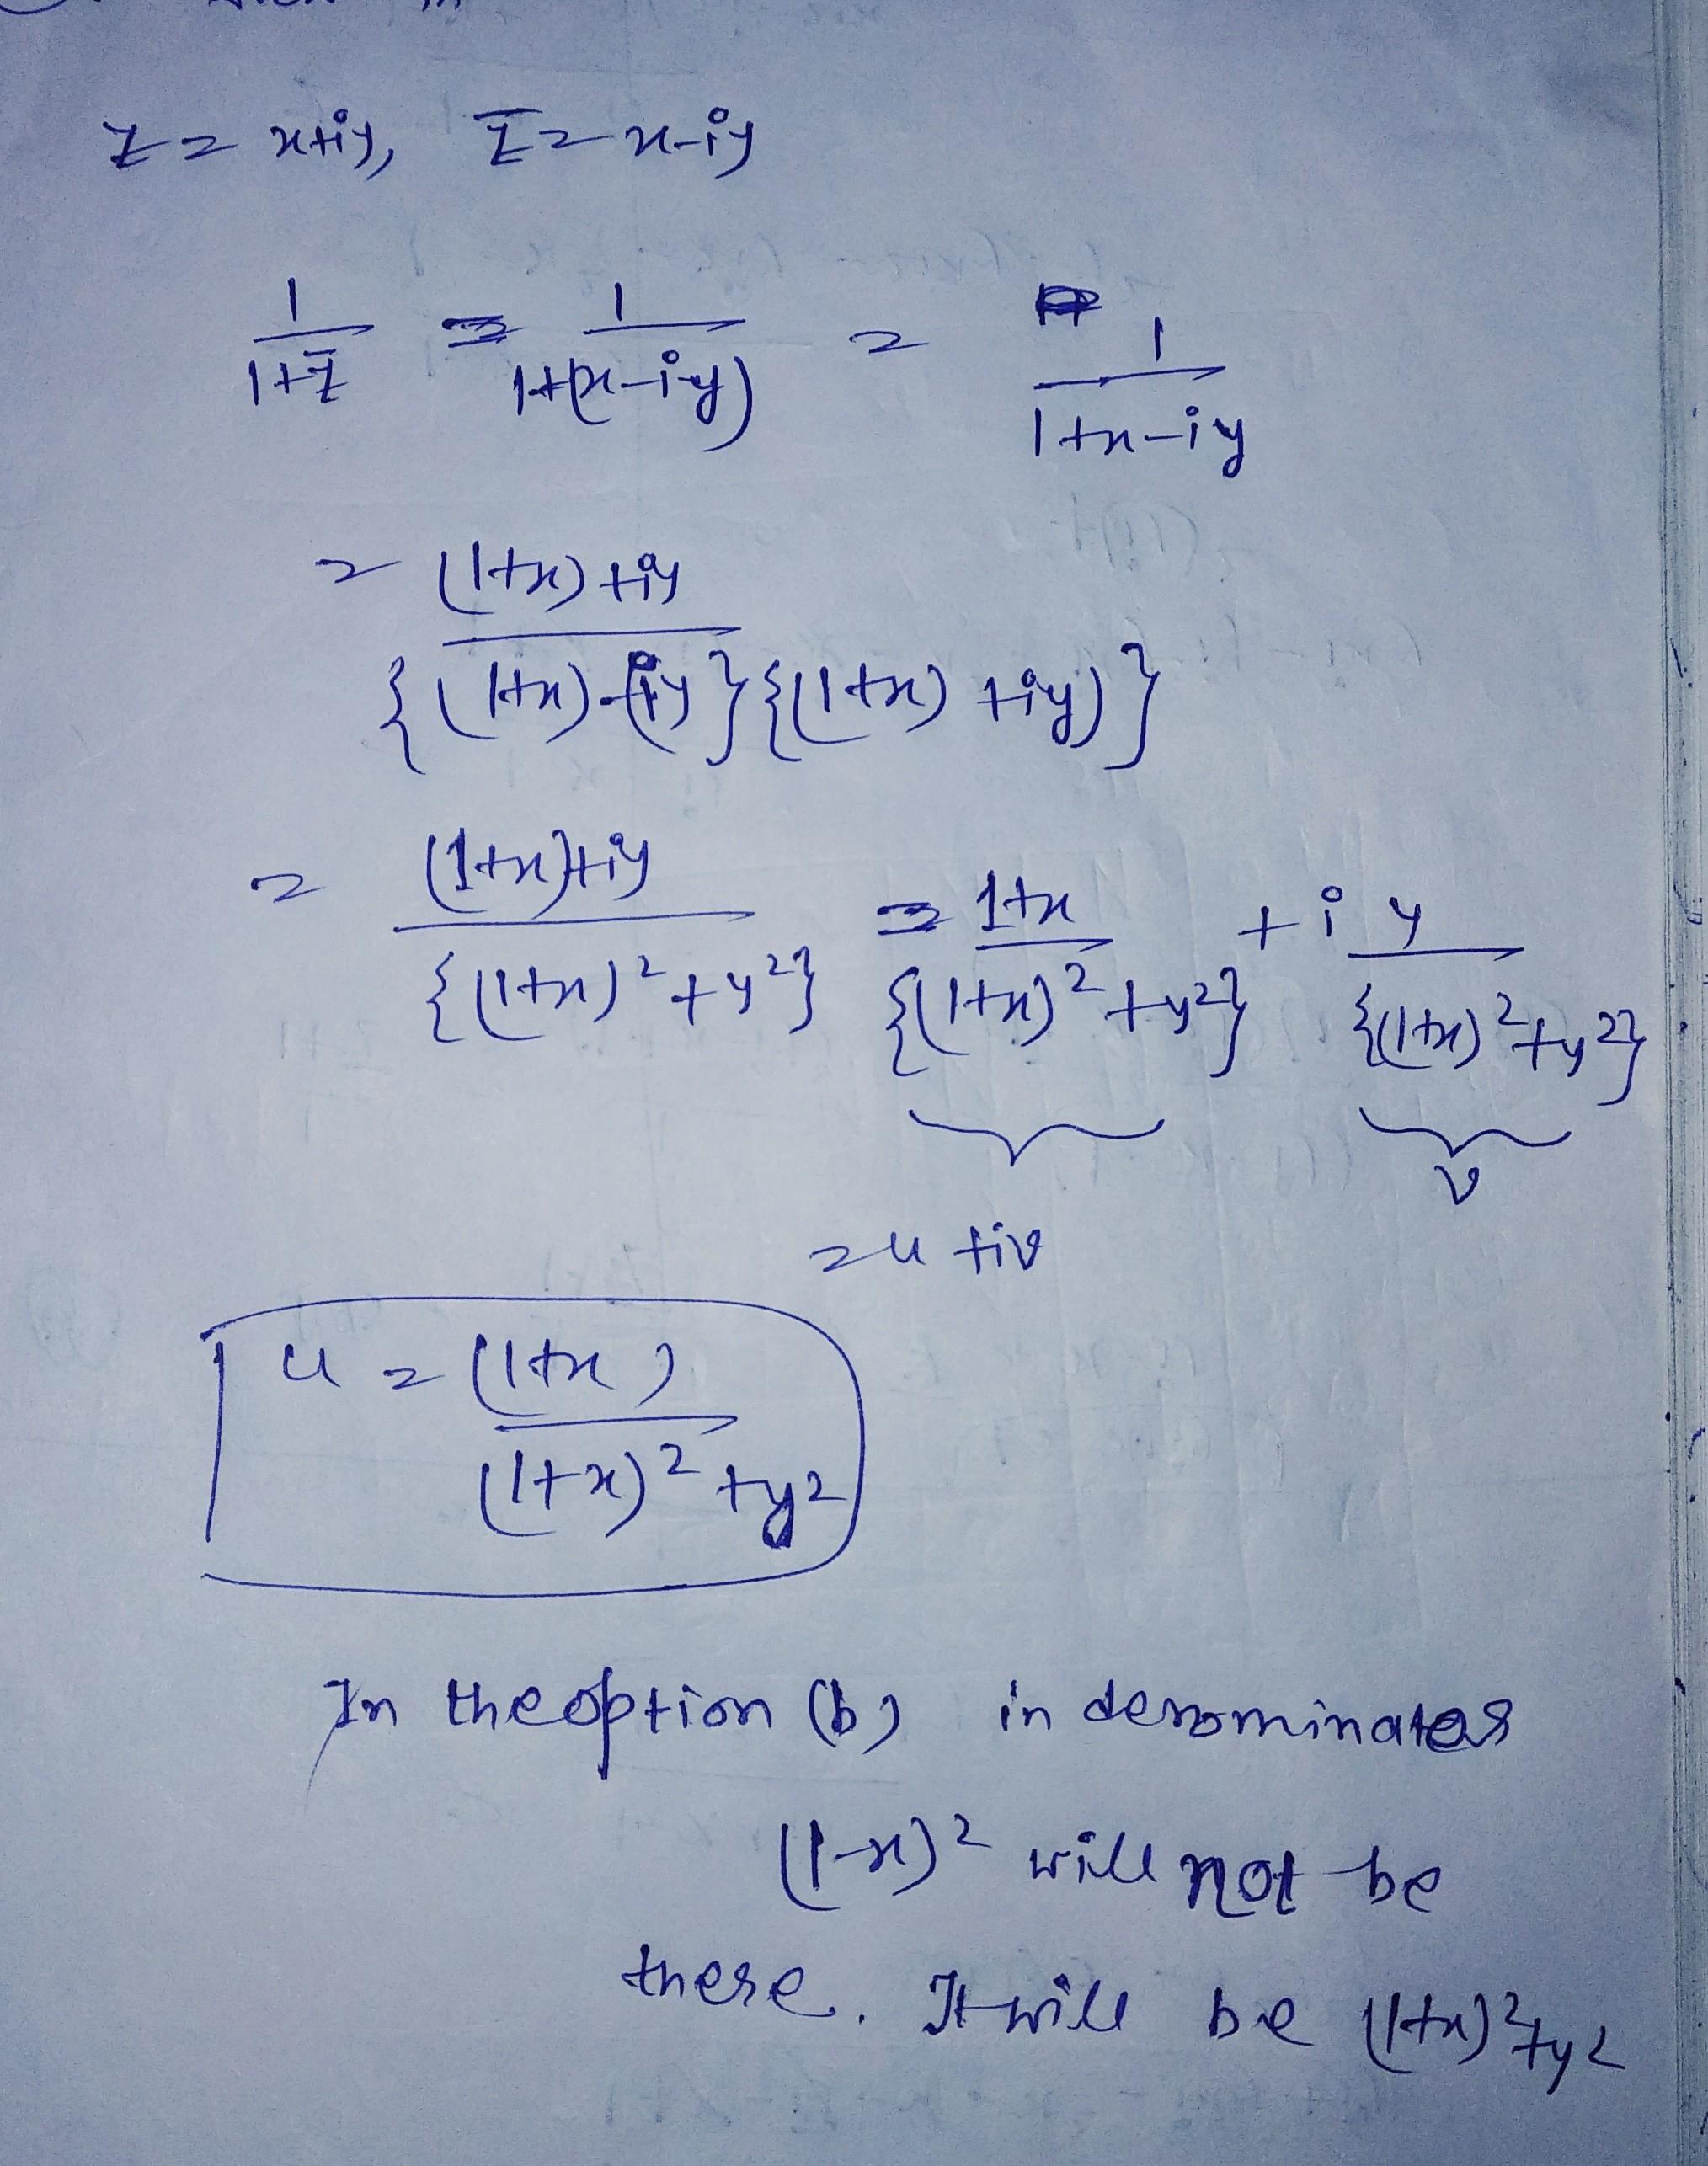 z = x+iy, z̄ = x-iy
1/(1+z̄) = 1/(1+(x-iy)) = 1/(1+x-iy)
= ((1+x)+iy)/({(1+x)-iy}{(1+x)+iy)})
= ((1+x)+iy)/{(1+x)²+y²} = (1+x)/{(1+x)²+y²} + i y/{(1+x)²+y²}
v
= u+iv
u = (1+x)/((1+x)²+y²)
In the option (b) in denominator
(1-x)² will not be
there. It will be (1+x)²+y²